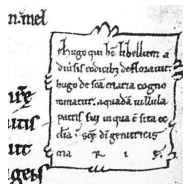 n.mel
Hugo qui hc̄ libellum a
diūsis codicib; defloravit.
hugo de sc̄a maria cogno
minatur. a quadam uillula
patris sui in qua ē sita ec
clia sc̄ę dī genitricis
ma R i ę.